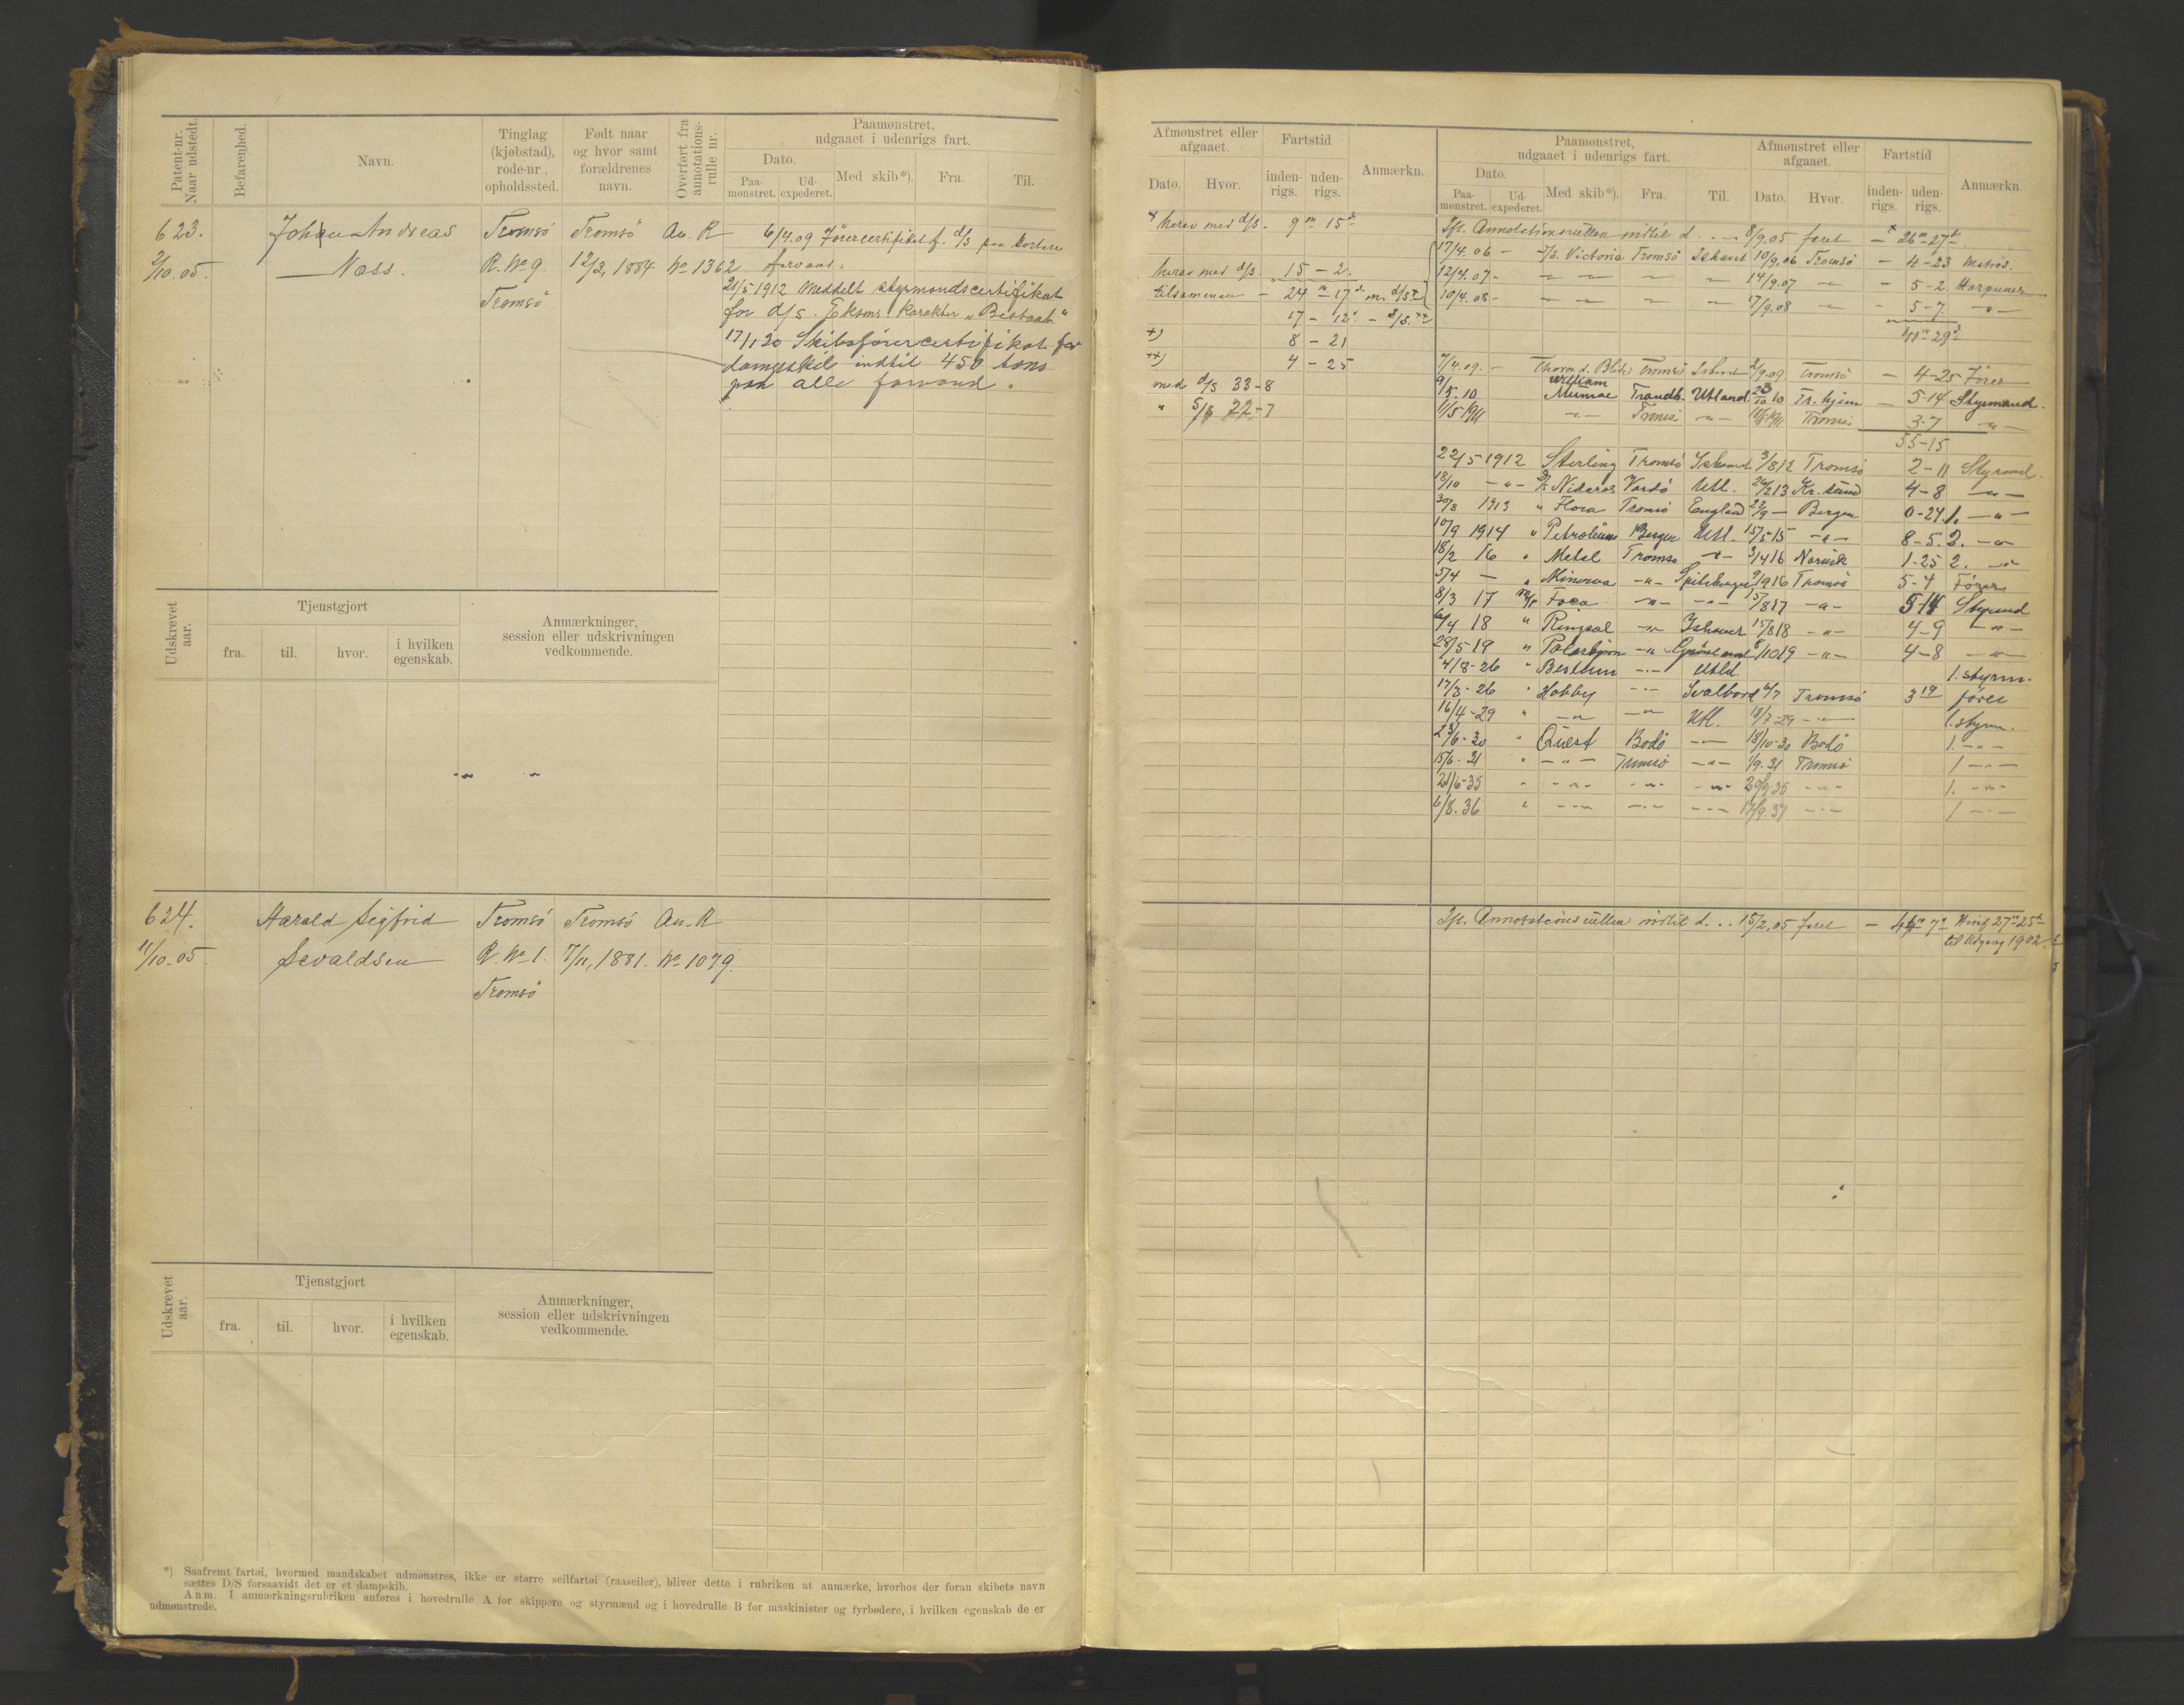 Patent-nr. Naar udstedt.
Befarenhed.
Navn.
Tinglag (kjøbstad), rode-nr., opholdssted.
Født naar og hvor samt forældrenes navn.
Overført fra annotations-rulle nr.
Paamønstret, udgaaet i udenrigs fart.
Dato.
Paa-mønstret.
Ud-expederet.
Med skib*).
Fra.
Til.
623.
2/10.05.
Johan Andreas
Næss.
Tromsö
R. No 9.
Tromsö
Tromsö
12/3, 1884
An. R
No 1362
6/4.09 Förercertifikat f. d/s paa kortere
farvand.
21/5 1912 Meddelt styrmandscertifikat
for d/s. Eksams. karakter "Bestaat"
17/1 20 Skibsförercertifikat for
dampskib indtil 450 tons
paa alle farvand.
Udskrevet aar.
Tjenstgjort
fra.
til.
hvor.
i hvilken egenskab.
Anmærkninger, session eller udskrivningen vedkommende.
624.
11/10.05
Harald Sigfrid
Sevaldsen
Tromsö
R. No 1.
Tromsö
Tromsö
7/11, 1881.
An. R
No 1079.
Udskrevet aar.
Tjenstgjort
fra.
til.
hvor.
i hvilken egenskab.
Anmærkninger, session eller udskrivningen vedkommende.
*) Saafremt fartøi, hvormed mandskabet udmønstres, ikke er større seilfartøi (raaseiler), bliver dette i rubriken at anmærke, hvorhos der foran skibets navn
sættes D/S forsaavidt det er et dampskib.
Anm. I anmærkningsrubriken anføres i hovedrulle A for skippere og styrmænd og i hovedrulle B for maskinister og fyrbødere, i hvilken egenskab de er
udmønstrede.
Afmønstret eller afgaaet.
Dato.
Hvor.
Fartstid
inden-rigs.
uden-rigs.
Anmærkn.
Paamønstret, udgaaet i udenrigs fart.
Dato.
Paa-mønstret.
Ud-expederet.
Med skib*).
Fra.
Til.
Afmønstret eller afgaaet.
Dato.
Hvor.
Fartstid
inden-rigs.
uden-rigs.
Anmærkn.
x herav med d/s. 9 m 15 d
herav med d/s. 15 - 2.
tilsammen - 24 m - 17 d m. d/s.
17 - 12 - S/S. ++
+) 8 - 21
++) 4 - 25
med d/s 33-8
" S/S 22-7
Ifl. Annotationsrullen indtil d. . . 8/9.05 faret - x 26 m 27 d
17/4.06 - Victoria Tromsö Ishavet 10/9.06 Tromsö - 4-23 Matros.
12/4.07 - 〃 〃 〃 14/9.07 〃 - 5-2. Harpuner
10/4.08 - 〃 〃 〃 17/9.08 〃 - 5-7. 〃
41 m 29 d
7/4.09. - Tromsö Ishavet 2/9.09 Tromsö - 4-25 Förer
9/5.10 William Munroe Trondh. Utland 23/10 10 Tr.hjem - 5-14 Styrmand.
11/5 1911 〃 Tromsö 〃 Tromsö 3-7 〃
55-15
22/5 1912 Sterling Tromsö Ishavet 3/8 12 Tromsö 2-11 Styrmd.
18/10 〃 Nidaros Vardö Utl. 26/2 13 Kr. sund 4-8 〃
30/8 1913 " Flora Tromsö England 23/9 - Bergen 0-24 1. 〃
10/9 1914 " Petroleum Bergen Utl. 15/5 15 〃 8-5. 2. 〃
18/2 16 " Metal Tromsö 〃 3/4 16 Narvik 1-25 2. 〃
5/4 - " Minerva 〃 Spitsbergen 9/9 16 Tromsö 5-4 Förer
8/3 17 M/k Foca 〃 〃 15/8 17 〃 5-14 Styrmd
6/4 18 " Ringsæl 〃 Ishavet 15/8 18 〃 4-9 〃
28/5-19 " Polarbjörn 〃 Grönland 8/10 19 〃 4-8 〃
4/8-26 " Bestum 〃 Utld. 1. styrm.
17/3-26 " Hobby 〃 Svalbard 6/7 Tromsö 3 19 förer
16/4-29 " 〃 〃 Utl. 18/7-29 〃 1. styrm.
23/6-30 " Quest Bodö 〃 18/10-30 Bodö 1. 〃
15/6-31 " 〃 Tromsö 〃 1/9.31 Tromsö 1 〃
21/6-35 " 〃 〃 〃 20/9.35 〃 1. 〃
6/8.36 " 〃 〃 〃 17/9.37 〃 1 〃
Ifl. Annotationsrullen indtil d. . . 15/2.05 faret - 44 m 7 d Heraf 27 m 25 d
til Udgang 1902.